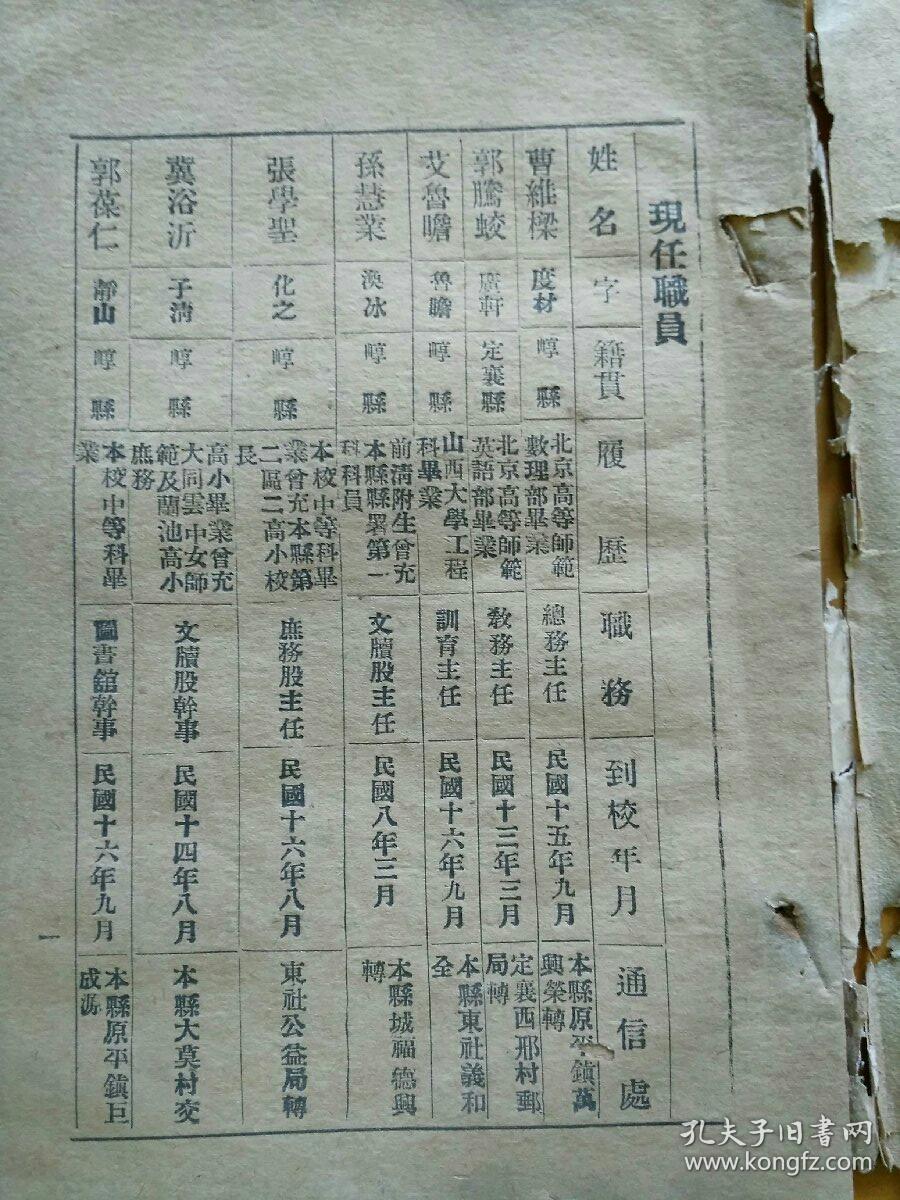 現任職員
姓名 字 籍貫 履歷 職務 到校年月 通信處
曹維樑 度材 崞縣 北京高等師範數理部畢業 總務主任 民國十五年九月 本縣原平鎮萬興榮轉
郭騰蛟 廣軒 定襄縣 北京高等師範英語部畢業 教務主任 民國十三年三月 定襄西邢村郵局轉
艾魯瞻 魯瞻 崞縣 山西大學工程科畢業 訓育主任 民國十六年九月 本縣東社義和全
孫慧業 渙冰 崞縣 前清附生曾充本縣縣署第一科科員 文牘股主任 民國八年三月 本縣城福德興轉
張學聖 化之 崞縣 本校中等科畢業曾充本縣第二區二高小校長 庶務股主任 民國十六年八月 東社公益局轉
冀浴沂 子清 崞縣 高小畢業曾充大同雲中女師範及蘭池高小庶務 文牘股幹事 民國十四年八月 本縣大莫村交
郭葆仁 靜山 崞縣 本校中等科畢業 圖書舘幹事 民國十六年九月 本縣原平鎮巨成源
一
孔夫子旧书网
www.kongfz.com